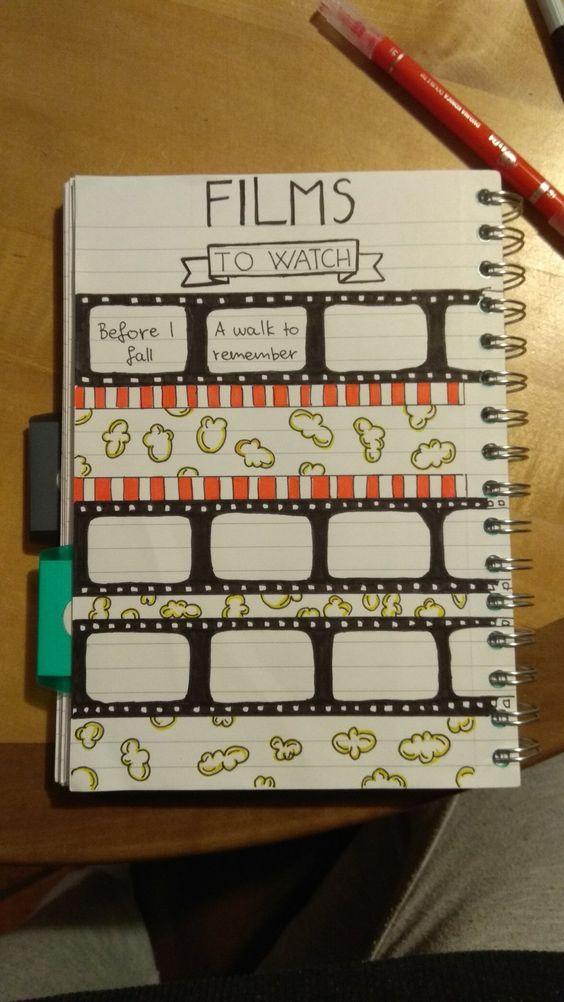 FILMS
TO WATCH
Before I
fall
A walk to
remember